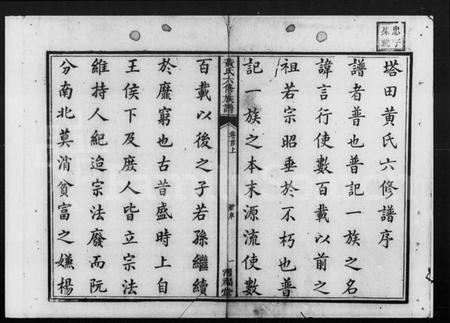 塔田黄氏六修譜序
譜者普也普記一族之名
諱言行使數百載以前之
祖若宗昭垂於不朽也普
記一族之本末源流使數
黃氏六修族譜
卷首上
百載以後之子若孫繼續
於靡窮也古昔盛時上自
王侯下及庶人皆立宗法
維持人紀迨宗法廢而阮
分南北莫消貧富之嫌楊